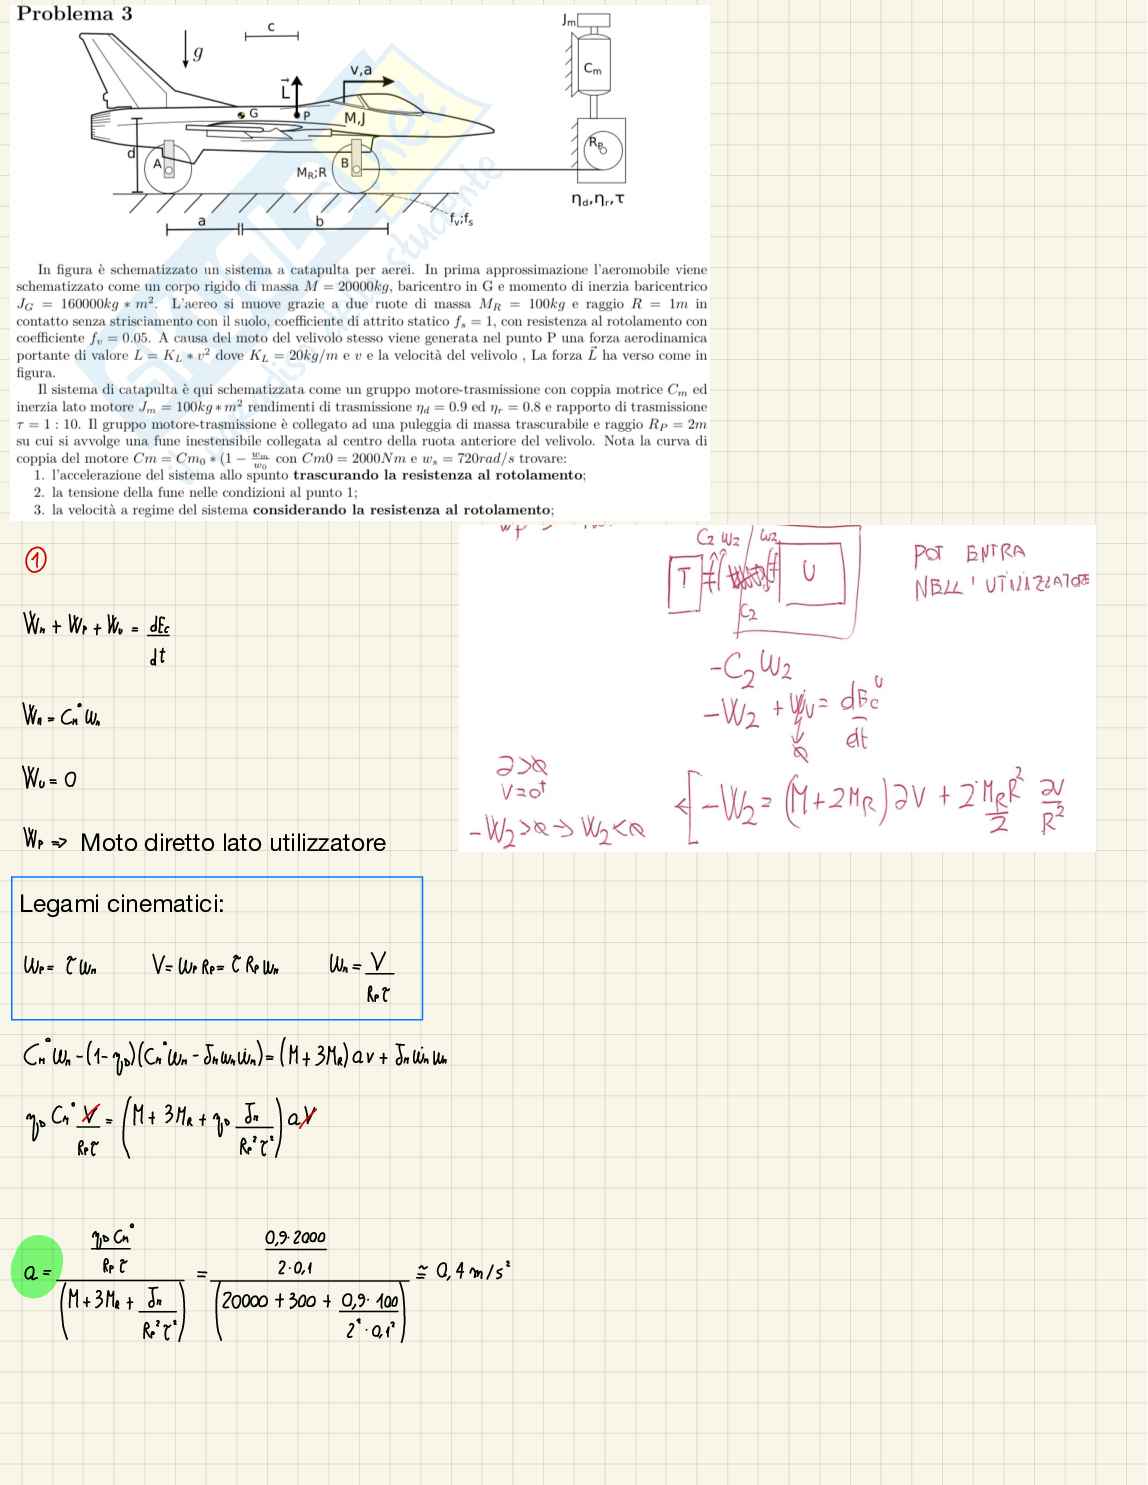 Problema 3
c
g
v,a
L
G
P
M,J
d
A
B
M_R;R
a
b
f_v;f_s
J_m
C_m
R_P
η_d,η_r,τ
In figura è schematizzato un sistema a catapulta per aerei. In prima approssimazione l'aeromobile viene
schematizzato come un corpo rigido di massa M = 20000kg, baricentro in G e momento di inerzia baricentrico
J_G = 160000kg * m². L'aereo si muove grazie a due ruote di massa M_R = 100kg e raggio R = 1m in
contatto senza strisciamento con il suolo, coefficiente di attrito statico f_s = 1, con resistenza al rotolamento con
coefficiente f_v = 0.05. A causa del moto del velivolo stesso viene generata nel punto P una forza aerodinamica
portante di valore L = K_L * v² dove K_L = 20kg/m e v e la velocità del velivolo , La forza L⃗ ha verso come in
figura.
Il sistema di catapulta è qui schematizzata come un gruppo motore-trasmissione con coppia motrice C_m ed
inerzia lato motore J_m = 100kg * m² rendimenti di trasmissione η_d = 0.9 ed η_r = 0.8 e rapporto di trasmissione
τ = 1 : 10. Il gruppo motore-trasmissione è collegato ad una puleggia di massa trascurabile e raggio R_P = 2m
su cui si avvolge una fune inestensibile collegata al centro della ruota anteriore del velivolo. Nota la curva di
coppia del motore Cm = Cm_0 * (1 − w_m/w_0 con Cm0 = 2000Nm e w_s = 720rad/s trovare:
1. l'accelerazione del sistema allo spunto trascurando la resistenza al rotolamento;
2. la tensione della fune nelle condizioni al punto 1;
3. la velocità a regime del sistema considerando la resistenza al rotolamento;
1
W_m + W_p + W_u = dEc/dt
W_m = C_m° ω_m
W_u = 0
W_p => Moto diretto lato utilizzatore
Legami cinematici:
ω_p = τ ω_m V = ω_p R_p = τ R_p ω_m ω_m = V/(R_p τ)
C_m° ω_m - (1-η_D)(C_m° ω_m - J_m ω_m ω̇_m) = (M + 3M_R) a v + J_m ω̇_m ω_m
η_D C_m° V/(R_p τ) = (M + 3M_R + η_D J_m/(R_p² τ²)) a V
a = (η_D C_m°/(R_p τ)) / (M + 3M_R + J_m/(R_p² τ²)) = (0,9·2000/(2·0,1)) / (20000 + 300 + 0,9·100/(2²·0,1²)) ≅ 0,4 m/s²
C2 ω2 / ω2
T
U
C2
POT ENTRA
NELL'UTILIZZATORE
-C2 ω2
-W2 + W_U = dEc^U/dt
∂>0
V=0⁺
-W2>0 → W2<0
-W2 = (M+2M_R) ∂V + 2 M_R R²/2 ∂V/R²